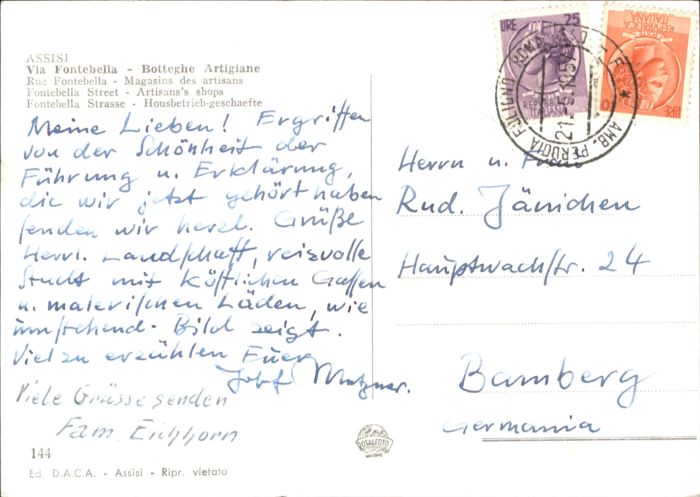 ASSISI
Via Fontebella - Botteghe Artigiane
Rue Fontebella - Magasins des artisans
Fontebella Street - Artisans's shops
Fontebella Strasse - Housbetrieb-geschaefte
Meine Lieben! Ergriffen
von der Schönheit der
Führung u. Erklärung,
die wir jetzt gehört haben
senden wir herzl. Grüße
Herrl. Landschaft, reizvolle
Stadt mit köstlichen Gassen
u. malerischen Läden, wie
umstehend. Bild zeigt.
Viel zu erzählen Euer
Viele Grüsse senden
Fam. Eichhorn
144
Ed. D.A.C.A. - Assisi - Ripr. vietata
LIRE 25
REPUBBLICA
ITALIANA
REPUBBLICA
ITALIANA
LIRE 10
AMB. PERUGIA FOLIGNO ROMA
Herrn u. Frau
Rud. Jänichen
Hauptwachstr. 24
Bamberg
Germania
ROTALFOTO
MILANO